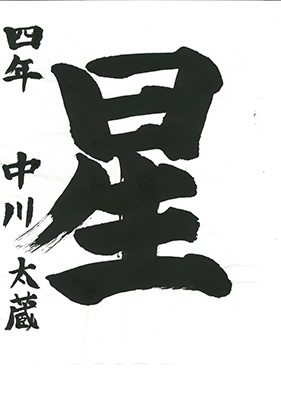 星
四年 中川 太蔵